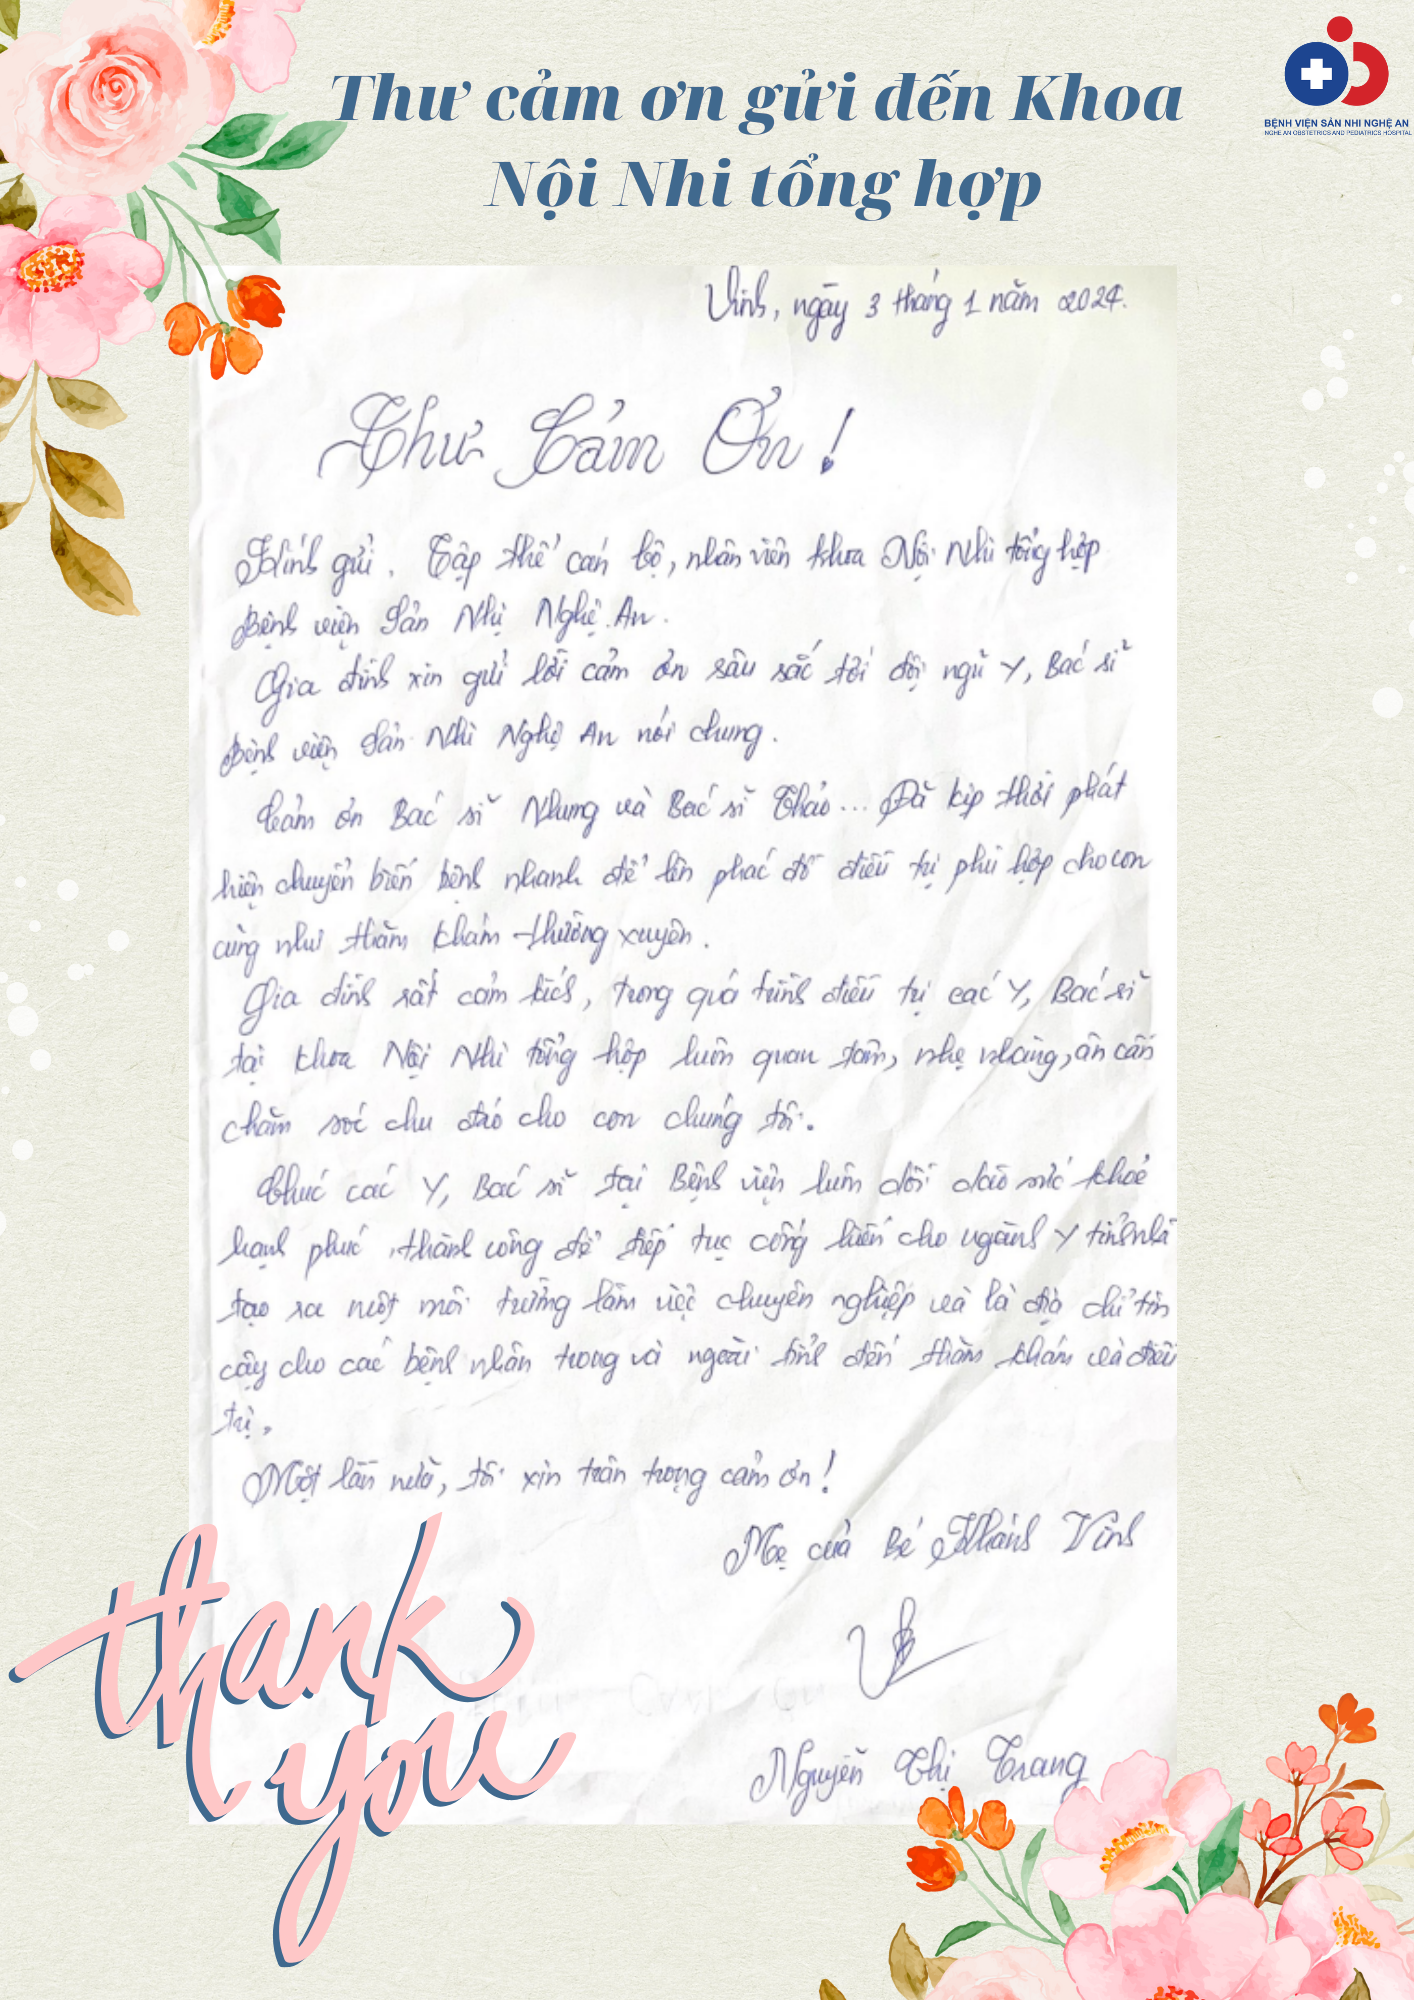 Thư cảm ơn gửi đến Khoa
Nội Nhi tổng hợp
BỆNH VIỆN SẢN NHI NGHỆ AN
NGHE AN OBSTETRICS AND PEDIATRICS HOSPITAL
Vinh, ngày 3 tháng 1 năm 2024.
Thư Cảm Ơn!
Kính gửi. Tập thể cán bộ, nhân viên khoa Nội Nhi tổng hợp
Bệnh viện Sản Nhi Nghệ An.
Gia đình xin gửi lời cảm ơn sâu sắc tới đội ngũ Y, Bác sĩ
Bệnh viện Sản Nhi Nghệ An nói chung.
Cảm ơn Bác sĩ Nhung và Bác sĩ Thảo... Đã kịp thời phát
hiện chuyển biến bệnh nhanh để lên phác đồ điều trị phù hợp cho con
cũng như thăm khám thường xuyên.
Gia đình rất cảm kích, trong quá trình điều trị các Y, Bác sĩ
tại khoa Nội Nhi tổng hợp luôn quan tâm, nhẹ nhàng, ân cần
chăm sóc chu đáo cho con chúng tôi.
Chúc các Y, Bác sĩ tại Bệnh viện luôn dồi dào sức khoẻ
hạnh phúc, thành công để tiếp tục cống hiến cho ngành Y tỉnh nhà
tạo ra một môi trường làm việc chuyên nghiệp và là địa chỉ tin
cậy cho các bệnh nhân trong và ngoài tỉnh đến thăm khám và điều
trị.
Một lần nữa, tôi xin trân trọng cảm ơn!
Mẹ của Bé Khánh Vinh
Nguyễn Thị Trang
thank
you